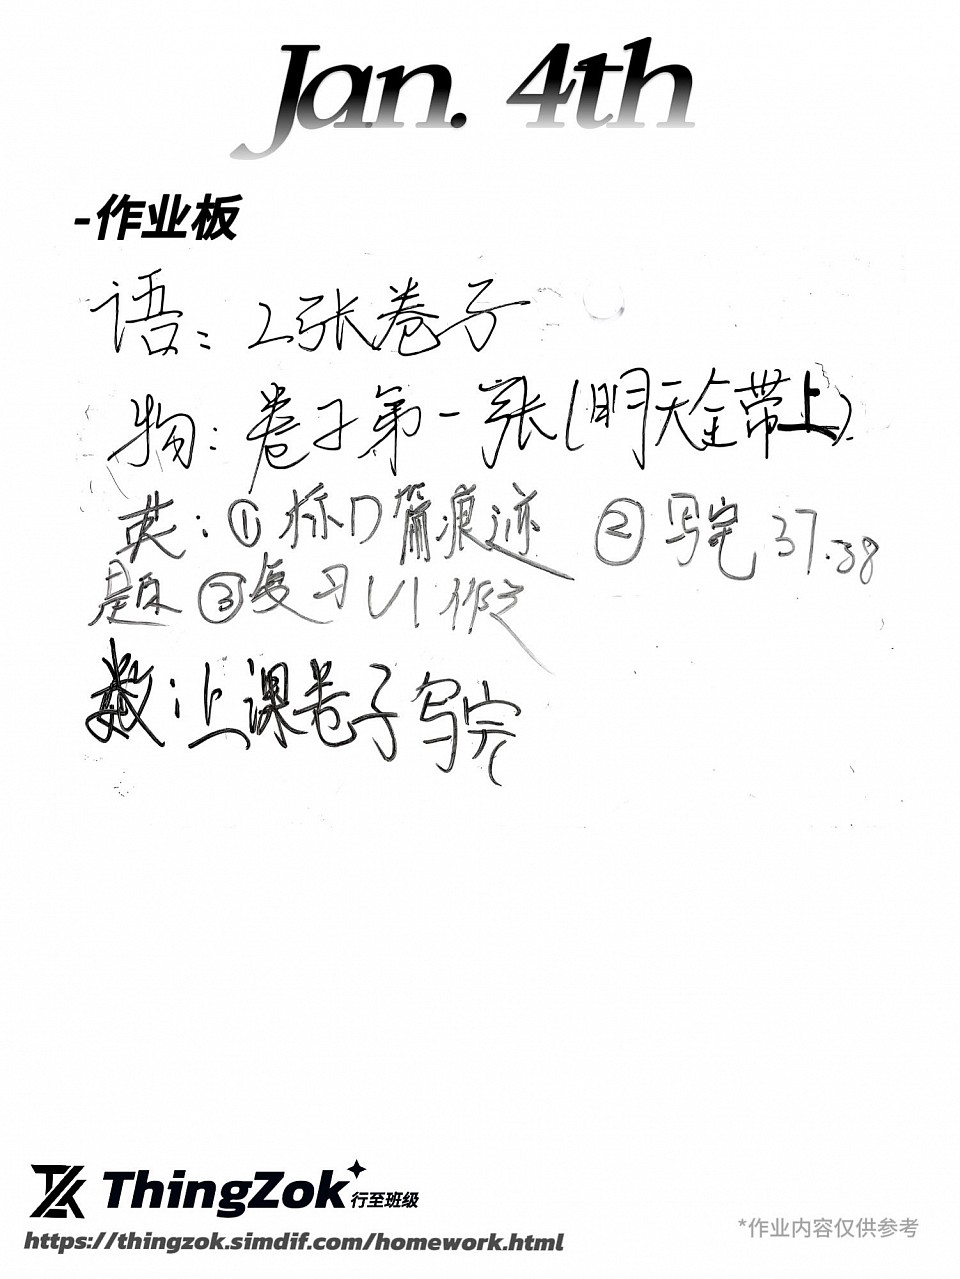 Jan. 4th
-作业板
语：2张卷子
物：卷子第一张(明天全带上).
英：①标D篇痕迹 ②写完37.38
题 ③复习U1作文
数：上课卷子写完
ThingZok 行至班级
https://thingzok.simdif.com/homework.html
*作业内容仅供参考